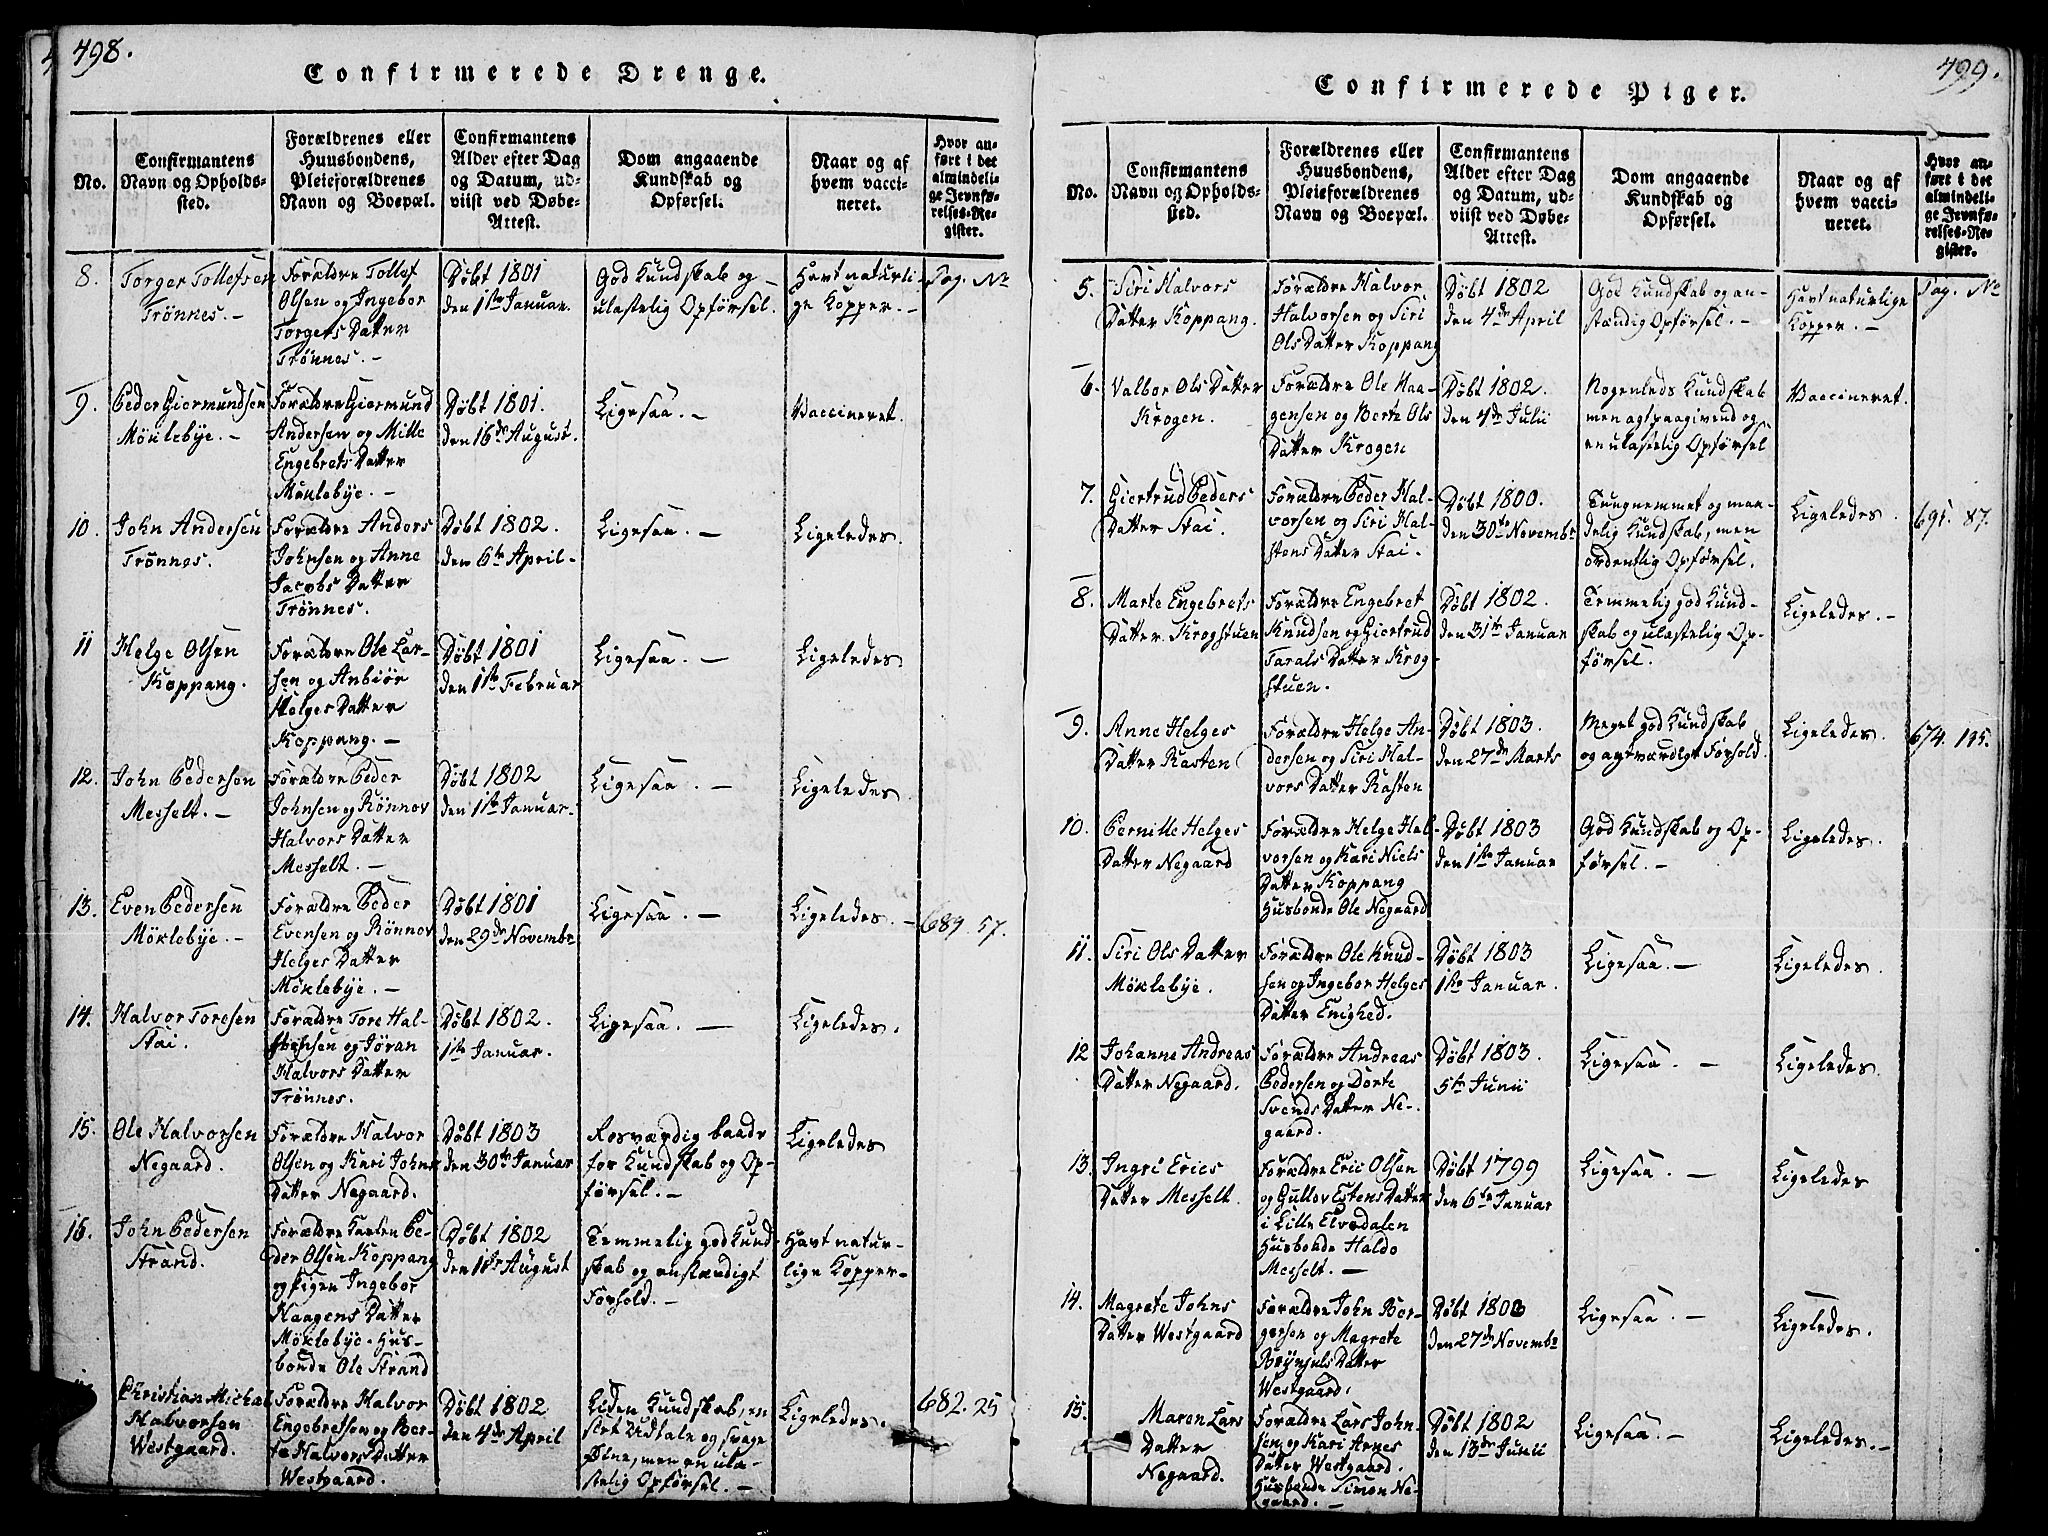 498.
Confirmerede Drenge.
No.
Confirmantens
Navn og Opholds-
sted.
Forældrenes eller
Huusbondens,
Pleieforældrenes
Navn og Boepæl.
Confirmantens
Alder efter Dag
og Datum, ud-
viist ved Døbe-
Attest.
Dom angaaende
Kundskab og
Opførsel.
Naar og af
hvem vacci-
neret.
Hvor an-
ført i det
almindeli-
ge Jevnfø-
relses-Re-
gister.
8.
Torger Tollefsen
Trönnes. -
Forældre Tollef
Olsen og Ingebor
Torgers Datter
Trönnes. -
Döbt 1801
den 1ste Januar.
God Kundskab og
ulastelig Opförsel.
Havt naturli-
ge Kopper. -
Pag. No
9.
Peder Giermundsen
Möklebye. -
Forældre Giermund
Andersen og Mille
Engebrets Datter
Möklebye. -
Döbt 1801.
den 16de August.
Ligesaa. -
Vaccineret.
10.
John Andersen
Trönnes.
Forældre Anders
Johnsen og Anne
Jacobs Datter
Trönnes.
Döbt 1802.
den 6te April -
Ligesaa. -
Ligeledes.
11
Helge Olsen
Koppang.
Forældre Ole Lar-
sen og Anbiör
Helges Datter
Koppang. -
Döbt 1801
den 1ste Februar
Ligesaa. -
Ligeledes
12.
John Pedersen
Messelt. -
Forældre Peder
Johnsen og Rönnov
Halvors Datter
Messelt. -
Döbt 1802
den 1ste Januar.
Ligesaa. -
Ligeledes
13.
Even Pedersen
Möklebye. -
Forældre Peder
Evensen og Rönnov
Helges Datter
Möklebye. -
Döbt 1801
den 29de Novembr
Ligesaa. -
Ligeledes. -
689. 57.
14.
Halvor Toresen
Stai.
Forældre Tore Hal-
stensen og Jöran
Halvors Datter
Trönnes.
Döbt 1802.
1ste Januar.
Ligesaa. -
Ligeledes.
15.
Ole Halvorsen
Negaard.
Forældre Halvor
Olsen og Kari Johns
Datter Negaard.
Döbt 1803
den 30te Januar
Rosværdig baade
for Kundskab og Op-
försel. -
Ligeledes
16.
John Pedersen
Strand.
Forældre Karlen Pe-
der Olsen Koppang
og Pigen Ingebor
Haagens Datter
Möklebye. Hus-
bonde Ole Strand
Döbt 1802
den 1ste August
Temmelig god Kund-
skab og anstændigt
Forhold. -
Havt natur-
lige Kopper-
Christian Michal
Halvorsen
Westgaard.
Forældre Halvor
Engebretsen og Ber-
te Halvors Datter
Westgaard.
Döbt 1802
den 4de April
Liden Kundskab, en
slet Udtale og svage
Öine, men en ula-
stelig Opförsel. -
Ligeledes.
682. 25
499.
Confirmerede Piger.
No.
Confirmantens
Navn og Opholds-
sted.
Forældrenes eller
Huusbondens,
Pleieforældrenes
Navn og Boepæl.
Confirmantens
Alder efter Dag
og Datum, ud-
viist ved Døbe-
Attest.
Dom angaaende
Kundskab og
Opførsel.
Naar og af
hvem vacci-
neret.
Hvor an-
ført i det
almindeli-
ge Jevnfø-
relses-Re-
gister.
5.
Siri Halvors
Datter Koppang.
Forældre Halvor
Halvorsen og Siri
Ols Datter Koppang
Döbt 1802
den 4de April
God Kundskab og an-
stændig Opförsel. -
Havt naturlige
Kopper. -
Pag. No
6.
Valbor Ols Datter
Krogen.
Forældre Ole Haa-
gensen og Berte Ols
Datter Krogen
Döbt 1802.
den 4de Julii
Nogenleds Kundskab
men agtpaagivend og
en ulastelig Opförsel
Vaccineret.
7.
Giertrud Peders
Datter Stai.
Forældre Peder Hal-
vorsen og Siri Hal-
stens Datter Stai.
Döbt 1800.
den 30te Novembr
Tungnemmet og maa-
delig Kundskab, men
ordentlig Opförsel.
Ligeledes.
691. 87.
8.
Marte Engebrets
Datter Krogstuen
Forældre Engebret
Knudsen og Giertrud
Tarals Datter Krog-
stuen.
Döbt 1802.
den 31te Januar
Temmelig god Kund-
skab og ulastelig Op-
försel.
Ligeledes. -
9.
Anne Helges
Datter Kasten
Forældre Helge An-
dersen og Siri Hal-
vors Datter Kasten
Döbt 1803.
den 27de Marts
Meget god Kundskab
og agtværdigt Forhold.
Ligeledes.
674. 115.
10.
Pernille Helges
Datter Negaard
Forældre Helge Hal-
vorsen og Kari Niels
Datter Koppang
Husbonde Ole Negaard
Döbt 1803
den 1ste Januar
God Kundskab og Op-
försel. -
Ligeledes.
11.
Siri Ols Datter
Möklebye.
Forældre Ole Knud-
sen og Ingebor Helges
Datter Enighed.
Döbt 1803
1ste Januar.
Ligesaa. -
Ligeledes.
12
Johanne Andreas
Datter Negaard.
Forældre Andreas
Pedersen og Dorte
Svends Datter Ne-
gaard.
Döbt 1803.
5te Junii
Ligesaa. -
Ligeledes.
13.
Ingri Erics
Datter Messelt.
Forældre Eric Olsen
og Gullov Estens Datter
i Lille Elvedalen
Husbonde Haldo
Messelt. -
Döbt 1799
den 6te Januar
Ligesaa. -
Ligeledes
14.
Magrete Johns
Datter Westgaard
Forældre John Ber-
gersen og Magrete
Brynjuls Datter
Westgaard.
Döbt
den 27de Novembr
Ligesaa. -
Ligeledes.
15.
Maren Lars
Datter
Negaard.
Forældre Lars John-
sen og Kari Arnes
Datter Westgaard.
Husbonde Simon Ne-
gaard. -
Döbt 1802
den 13de Junii
Ligesaa. -
Ligeledes. -